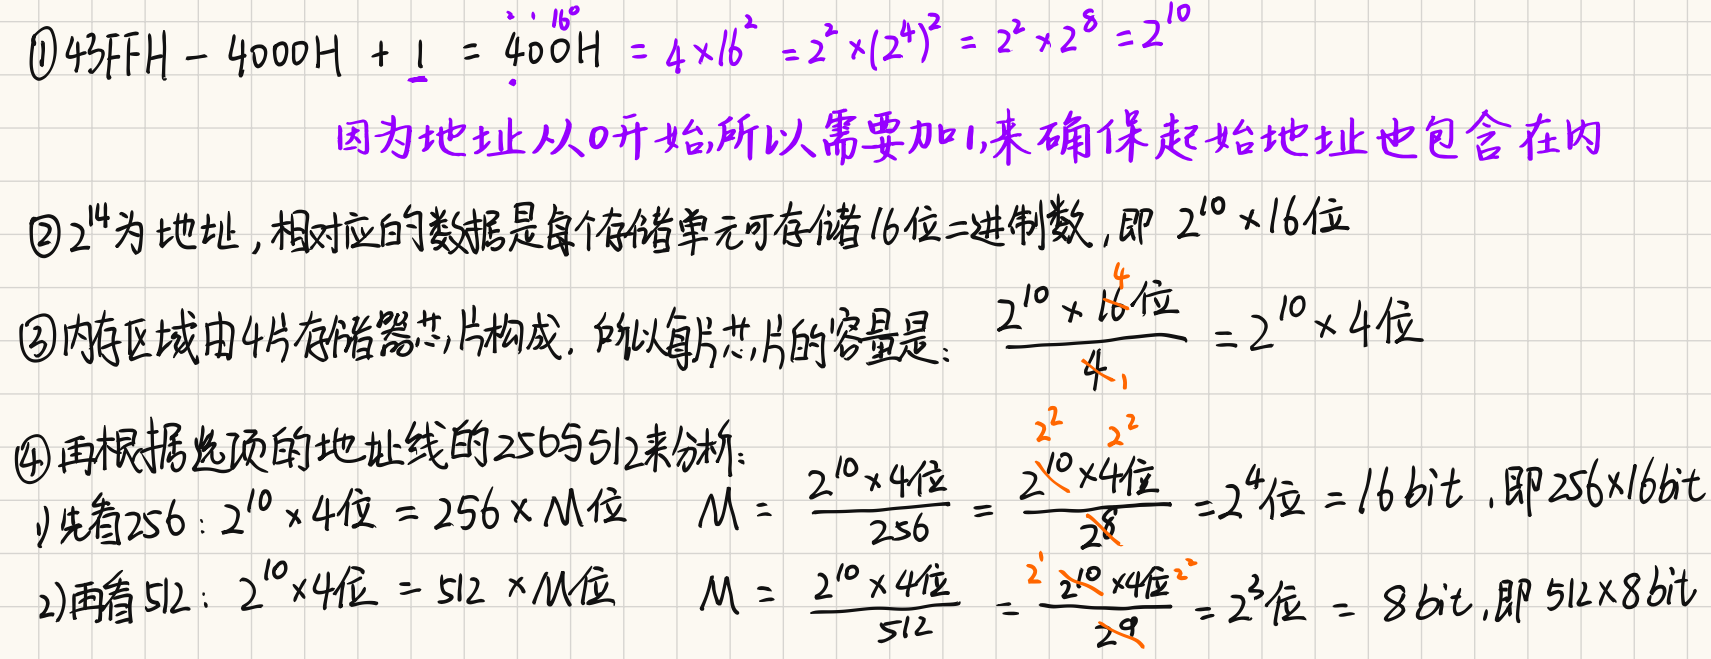 ①43FFH - 4000H + 1 = 400H = 4×16² = 2²×(2⁴)² = 2²×2⁸ = 2¹⁰
2 1 16⁰
因为地址从0开始,所以需要加1,来确保起始地址也包含在内
②2¹⁴为地址,相对应的数据是每个存储单元可存储16位二进制数,即 2¹⁰×16位
③内存区域由4片存储器芯片构成.所以每片芯片的容量是: 2¹⁰×16位/4 = 2¹⁰×4位
4 1
④再根据选项的地址线的256与512来分析:
2² 2²
1)先看256: 2¹⁰×4位 = 256×M位 M = 2¹⁰×4位/256 = 2¹⁰×4位/2⁸ = 2⁴位 = 16bit,即256×16bit
2¹ 2²
2)再看512: 2¹⁰×4位 = 512×M位 M = 2¹⁰×4位/512 = 2¹⁰×4位/2⁹ = 2³位 = 8bit,即512×8bit